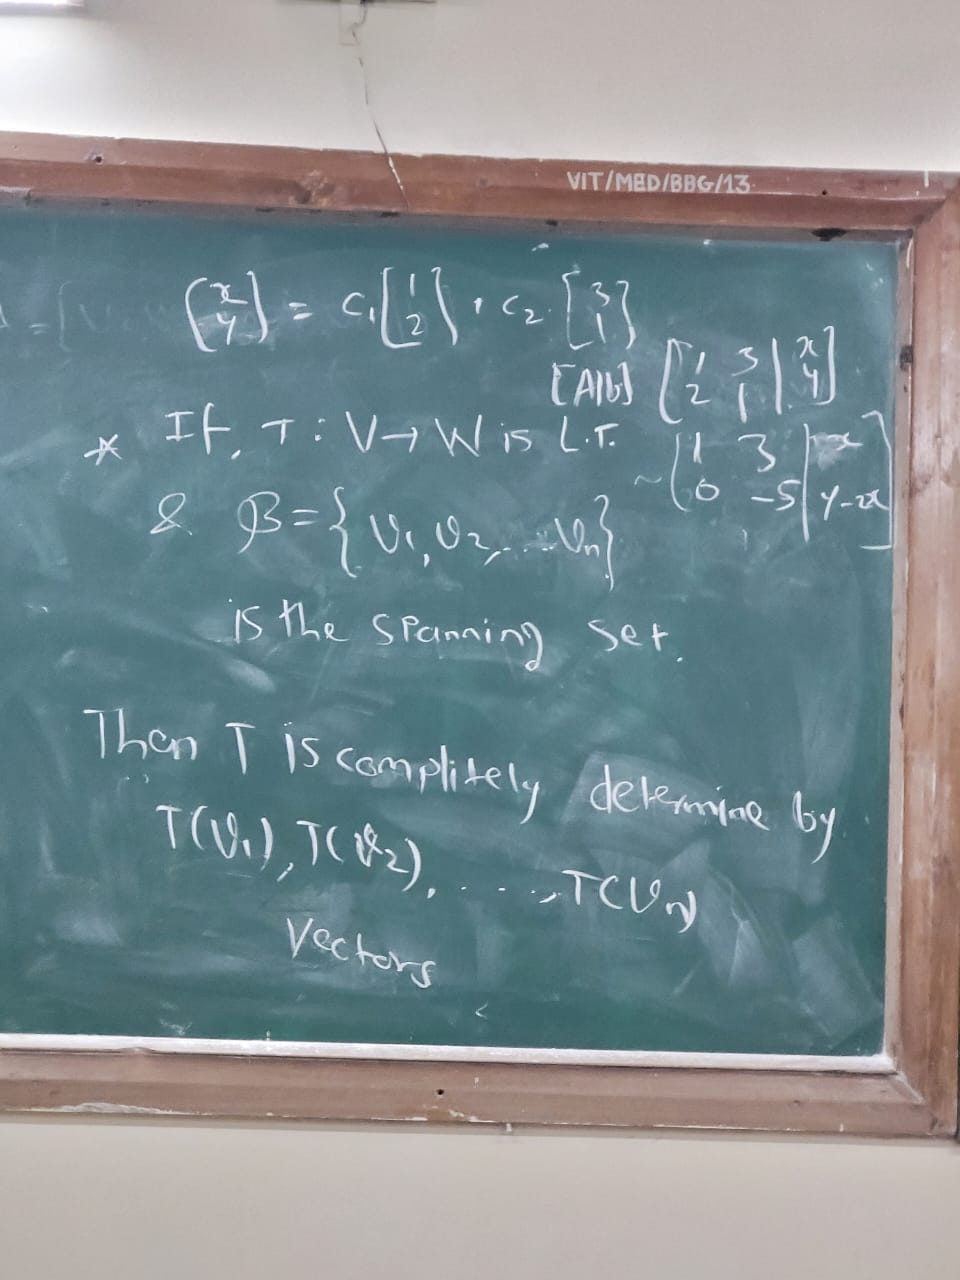 VIT/MED/BBG/13
[x y] = c₁ [1 2] + c₂ [3 1]
[A|b] [1 3 | x
2 1 | y]
* If, T : V → W is L.T.
~ [1 3 | x
0 -5 | y-2x]
& β = { v₁, v₂, ... vₙ}
is the spanning set.
Then T is complitely determine by
T(v₁), T(v₂), ....., T(vₙ)
Vectors